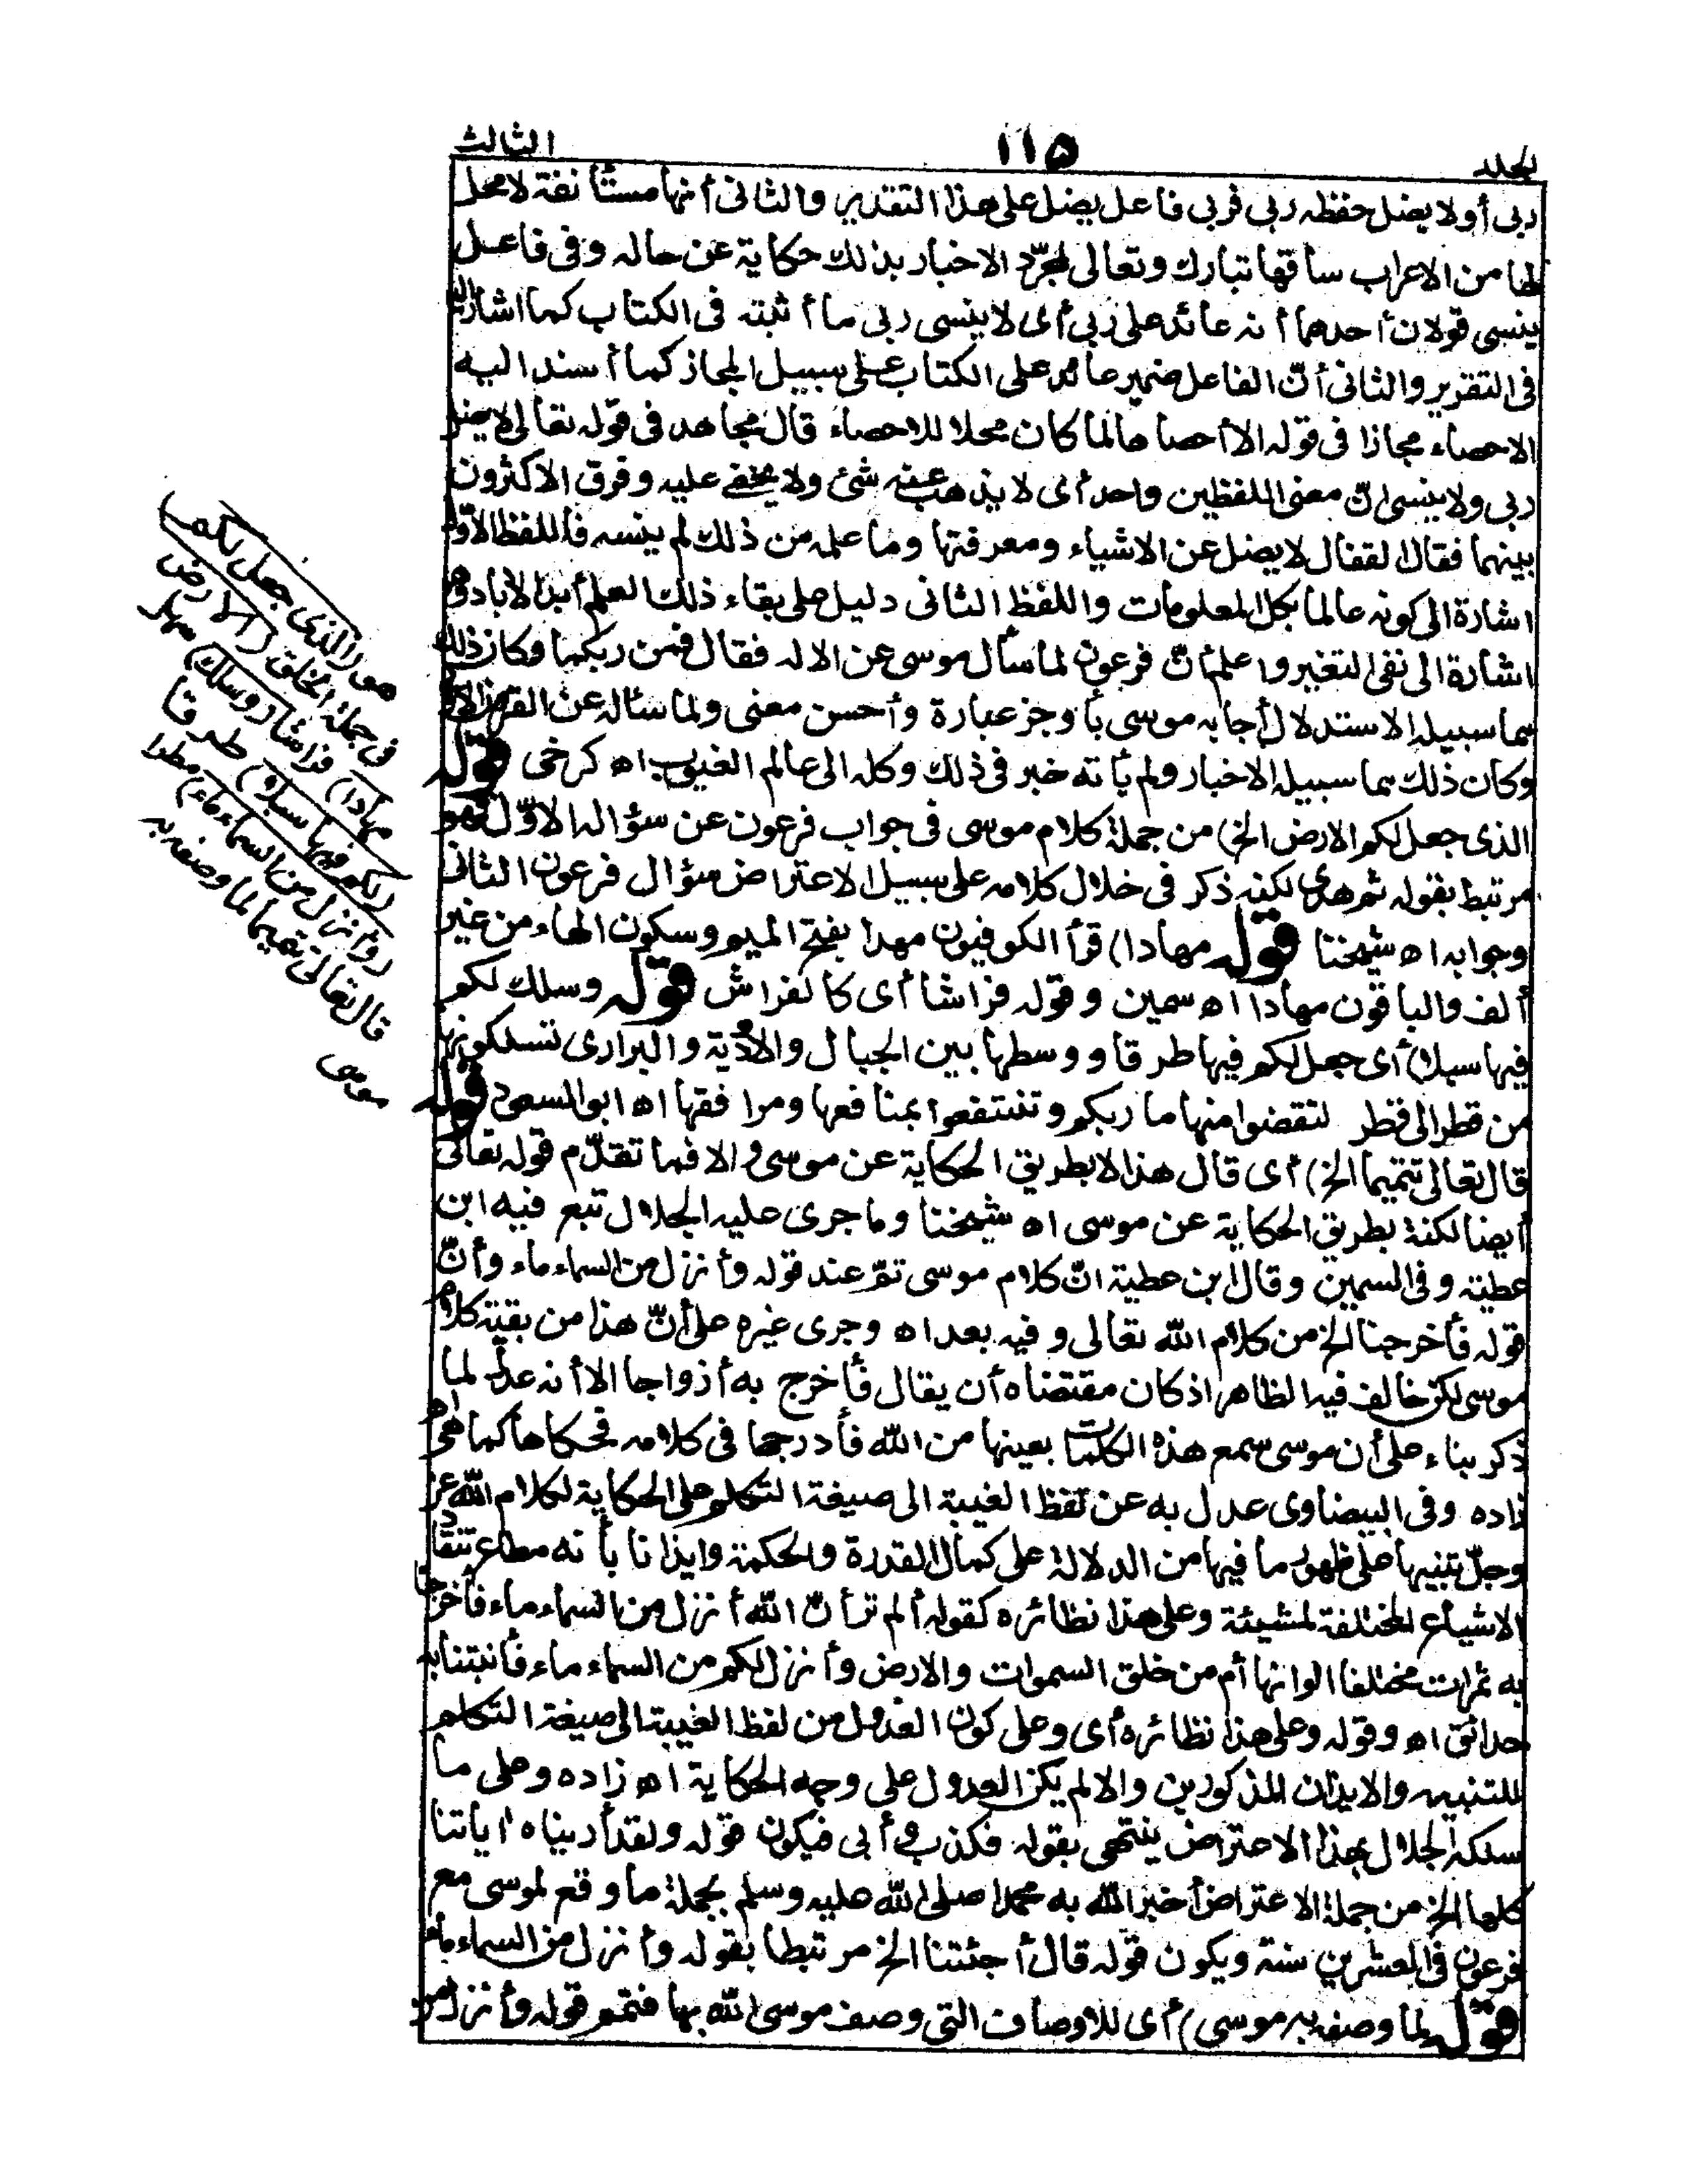 الجلد ١١٥ الثالث
ربى أو لا يضل حفظه ربى فربى فاعل يضل على هذا التقدير والثانى أنها مستأنفة لا محل
لها من الاعراب ساقها تبارك وتعالى لمجرّد الاخبار بذلك حكاية عن حاله وفى فاعل
ينسى قولان أحدهما أنه عائد على ربى أى لا ينسى ربى ما أثبته فى الكتاب كما اشار اليه
فى التقرير والثانى أنّ الفاعل ضمير عائد على الكتاب على سبيل المجاز كما أسند اليه
الاحصاء مجازا فى قوله الا أحصاها لما كان محلا للاحصاء قال مجاهد فى قوله تعالى لا يضل
ربى ولا ينسى انّ معنى اللفظين واحد أى لا يذهب عنه شئ ولا يخفى عليه وفرق الاكثرون
بينهما فقال القفال لا يضل عن الاشياء ومعرفتها وما علمه من ذلك لم ينسه فاللفظ الاوّل
اشارة الى كونه عالما بكل المعلومات واللفظ الثانى دليل على بقاء ذلك العلم أبد الآباد وهو
اشارة الى نفى التغير واعلم أنّ فرعون لما سأل موسى عن الاله فقال فمن ربكما وكان ذلك
مما سبيله الاستدلال أجابه موسى بأوجز عبارة وأحسن معنى ولما سئاله عن القرون الاولى
وكان ذلك مما سبيله الاخبار ولم يأته خبر فى ذلك وكله الى عالم الغيوب اه كرخى قوله
الذى جعل لكم الارض الخ) من جملة كلام موسى فى جواب فرعون عن سؤاله الاوّل فهو
مرتبط بقوله ثم هدى لكنه ذكر فى خلال كلامه على سبيل الاعتراض سؤال فرعون الثانى
وجوابه اه شيخنا قوله مهادا) قرأ الكوفيون مهدا بفتح الميم وسكون الهاء من غير
ألف والباقون مهادا اه سمين وقوله فراشا أى كالفراش قوله وسلك لكم
فيها سبلا) أى جعل لكم فيها طرقا ووسطها بين الجبال والاودية والبرارى تسلكونها
من قطر الى قطر لتقضوا منها ماربكم وتنتفعوا بمنافعها ومرافقها اه ابو السعود قوله
قال تعالى تتميما الخ) أى قال هذا لا بطريق الحكاية عن موسى والا فما تقدّم قوله تعالى
أيضا لكنه بطريق الحكاية عن موسى اه شيخنا وما جرى عليه الجلال تبع فيه ابن
عطية وفى السمين وقال ابن عطية انّ كلام موسى تمّ عند قوله وأنزل من السماء ماء وأنّ
قوله فأخرجنا الخ من كلام الله تعالى وفيه بعد اه وجرى غيره على أنّ هذا من بقية كلام
موسى لكن خالف فيه الظاهر اذ كان مقتضاه أن يقال فأخرج به أزواجا الا أنه عدل لما
ذكر بناء على أن موسى سمع هذه الكلمات بعينها من الله فأدرجها فى كلامه فحكاها كما هى اه
زاده وفى البيضاوى عدل به عن لفظ الغيبة الى صيغة التكلم على الحكاية لكلام الله عز
وجلّ تنبيها على ظهور ما فيها من الدلالة على كمال القدرة والحكمة وايذانا بأنه مطاع تنقاد
الاشياء المختلفة لمشيئته وعلى هذا نظائره كقوله ألم تر أنّ الله أنزل من السماء ماء فأخرجنا
به ثمرات مختلفا الوانها أم من خلق السموات والارض وأنزل لكم من السماء ماء فأنبتنا به
حدائق اه وقوله وعلى هذا نظائره أى وعلى كون العدول من لفظ الغيبة الى صيغة التكلم
للتنبيه والايذان المذكورين والا لم يكن العدول على وجه الحكاية اه زاده وعلى ما
سلكه الجلال بهذا الاعتراض ينتهى بقوله فكذب وأبى فيكون قوله ولقد أريناه اياتنا
كلها الخ من جملة الاعتراض أخبر الله به محمدا صلى الله عليه وسلم بجملة ما وقع لموسى مع
فرعون فى العشرين سنة ويكون قوله قال أجئتنا الخ مرتبطا بقوله وأنزل من السماء ماء
قوله لما وصفه به موسى) أى للاوصاف التى وصف موسى الله بها فتمم قوله وأنزل من
هو (الذى جعل لكم)
فى جملة الخلق (الارض
مهادا) فراشا (وسلك) سهل
(لكم فيها سبلا) طرقا
(وأنزل من السماء ماء) مطرا
قال تعالى تتميما لما وصفه به
موسى